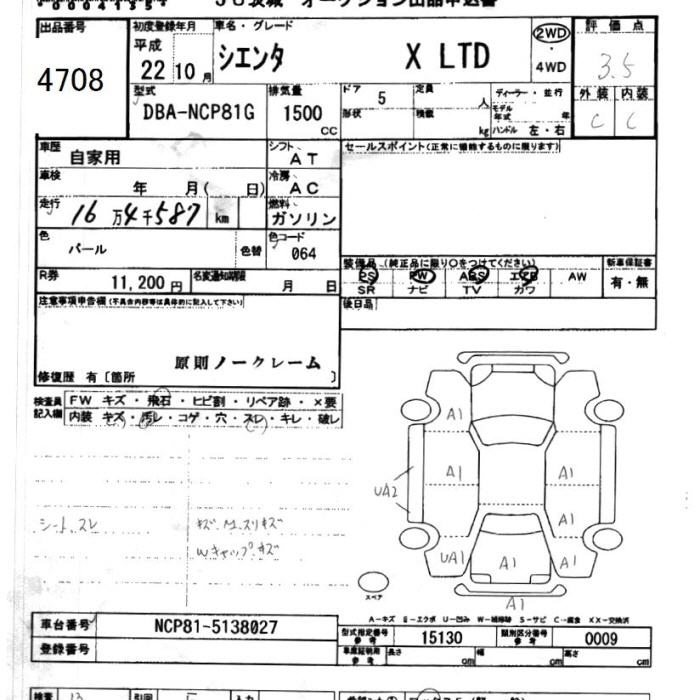 出品番号
4708
初度登録年月
平成
22 10 月
車名・グレード
シエンタ X LTD
2WD
・
4WD
評価点
3.5
外装 内装
C C
型式
DBA-NCP81G
排気量
1500
CC
ドア
5
形状
定員
人
積載
kg
ディーラー・並行
モデル
年式 年
ハンドル 左・右
車歴
自家用
シフト
AT
セールスポイント(正常に機能するものに限ります)
車検
年 月( 日)
冷房
AC
走行
16万4千587 km
燃料
ガソリン
色
パール
色替
色コード
064
R券
11,200 円
名変通知期限
月 日
装備品 (純正品に限り○をつけてください)
PS PW ABS エアB AW
SR ナビ TV カワ
新車保証書
有・無
後日品
注意事項申告欄(不具合内容等は具体的に記入して下さい)
原則ノークレーム
修復歴 有〔箇所 〕
検査員
記入欄
FW キズ・飛石・ヒビ割・リペア跡・×要
内装 キズ・汚レ・コゲ・穴・スレ・キレ・破レ
シート スレ
キズ M.スリキズ
Wキャップ キズ
A1
A1
A1
UA2
A1
UA1
A1
A1
A1
スペア
A-キズ E-エクボ U-凹み W-補修跡 S-サビ C-腐食 XX-交換済
車台番号
NCP81-5138027
登録番号
型式指定番号
参考
15130
類別区分番号
参考
0009
車庫証明用
参考
長さ cm 幅 cm 高さ cm